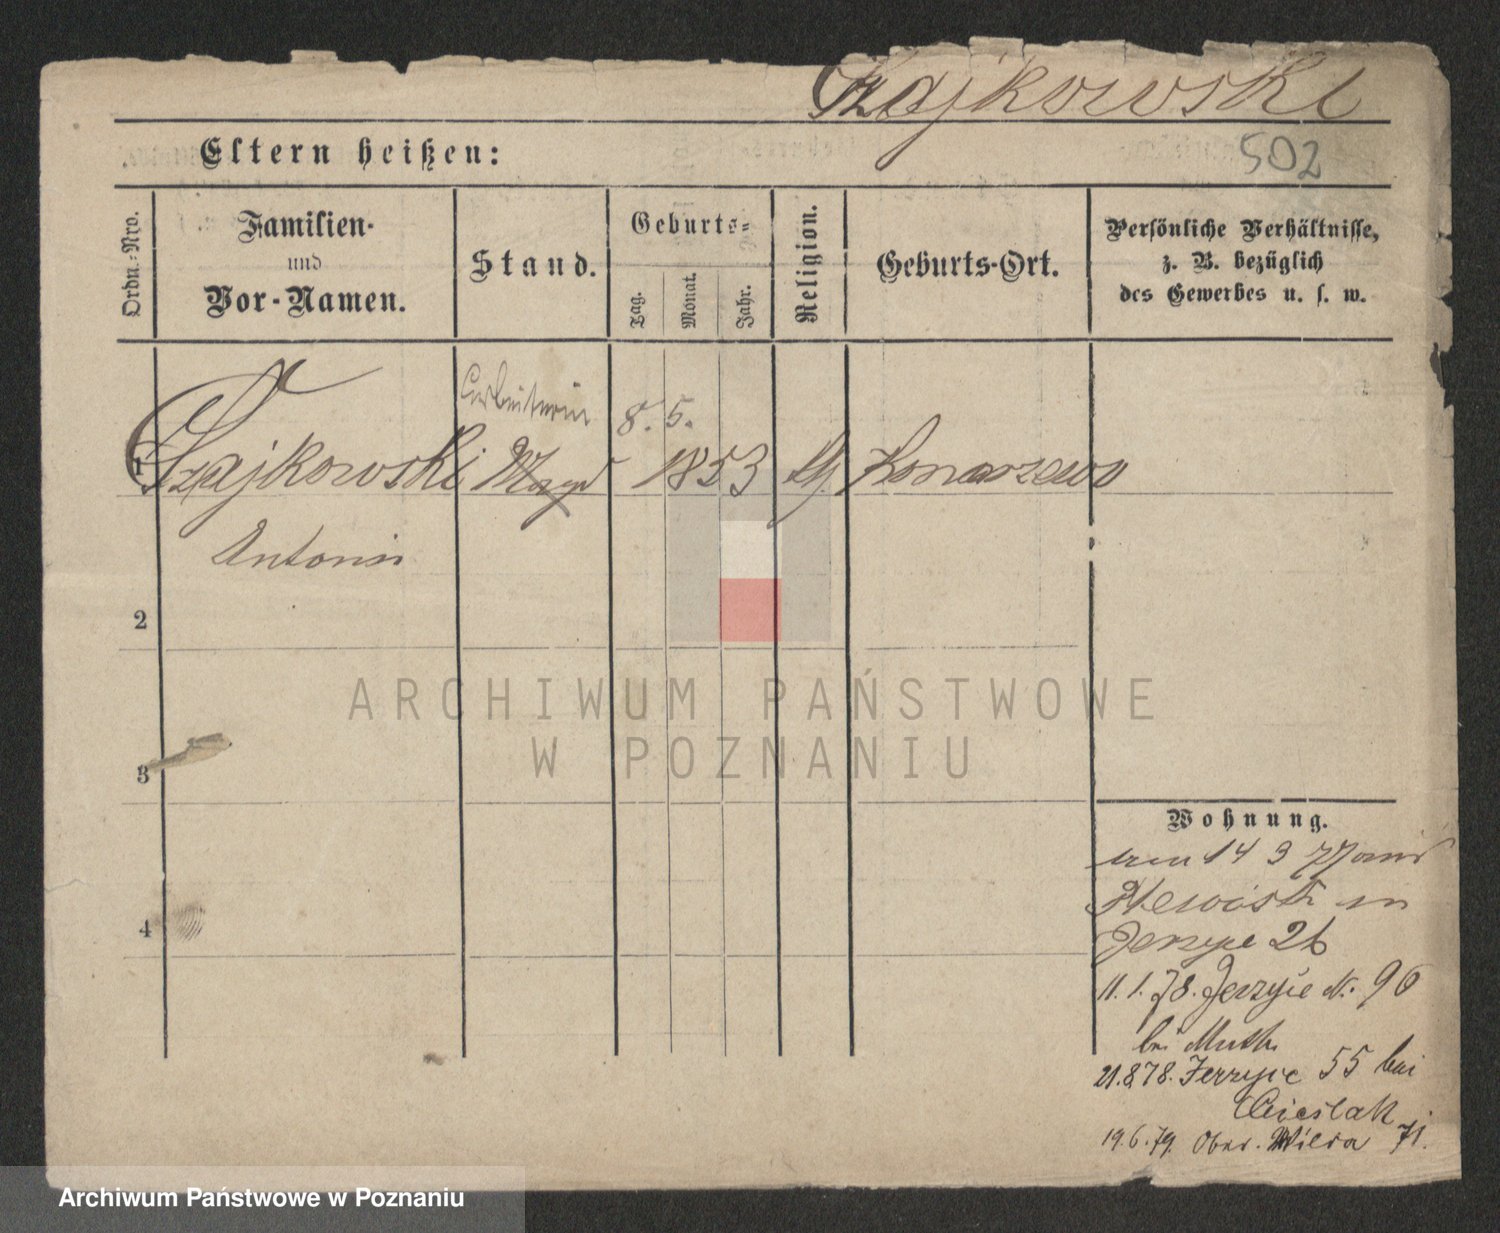 Czajkowski
Eltern heißen:
502
Ordn.-Nro.
Familien-
und
Vor-Namen.
Stand.
Geburts-
Tag.
Monat.
Jahr.
Religion.
Geburts-Ort.
Persönliche Verhältnisse,
z. B. bezüglich
des Gewerbes u. s. w.
Arbeiterin
8. 5.
1 Czajkowski Magd 1853 Konarzewo
Antonie
2
3
4
ARCHIWUM PAŃSTWOWE
W POZNANIU
Wohnung.
14 9 77
in
Jerzyce 26
11.1.78. Jerzyce N. 96
bei Muth
21.8.78. Jerzyce 55 bei
Cieslak
19.6.79. Ober. Wilda 71.
Archiwum Państwowe w Poznaniu